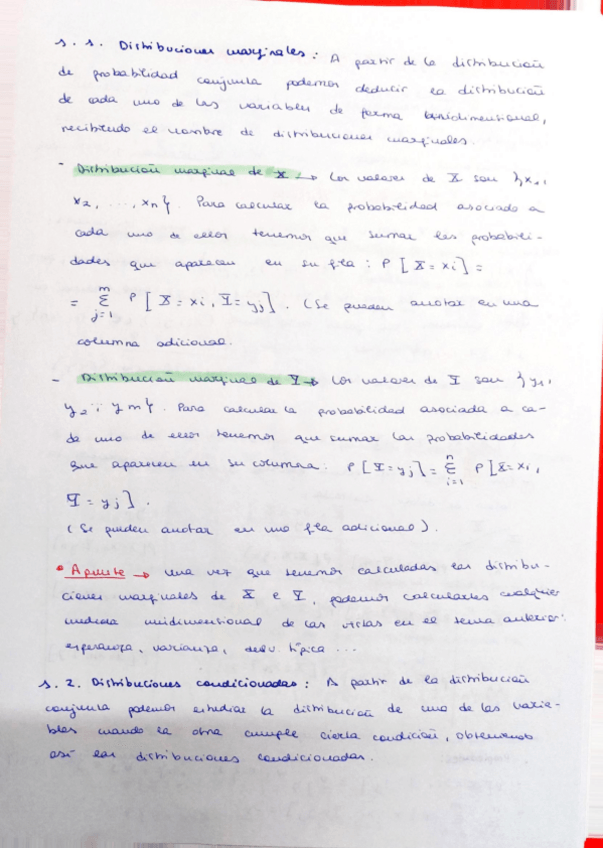 1. 1. Distribuciones marginales: A partir de la distribución
de probabilidad conjunta podemos deducir la distribución
de cada uno de las variables de forma unidimensional,
recibiendo el nombre de distribuciones marginales.
- Distribución marginal de X → Los valores de X son {x1,
x2, ..., xn}. Para calcular la probabilidad asociado a
cada uno de ellos tenemos que sumar las probabili-
dades que aparecen en su fila: P[X = xi] =
= Σ_{j=1}^{m} P[X = xi, Y = yj]. (Se pueden anotar en una
columna adicional.
- Distribución marginal de Y → Los valores de Y son {y1,
y2 ..; ym}. Para calcular la probabilidad asociada a ca-
da uno de ellos tenemos que sumar las probabilidades
que aparecen en su columna: P[Y = yj] = Σ_{i=1}^{n} P[X = xi,
Y = yj].
(Se pueden anotar en una fila adicional).
• Apunte → una vez que tenemos calculadas las distribu-
ciones marginales de X e Y, podemos calcularles cualquier
medida unidimensional de las vistas en el tema anterior:
esperanza, varianza, desv. típica ...
1. 2. Distribuciones condicionadas: A partir de la distribución
conjunta podemos estudiar la distribución de una de las varia-
bles cuando la otra cumple cierta condición, obteniendo
así las distribuciones condicionadas.